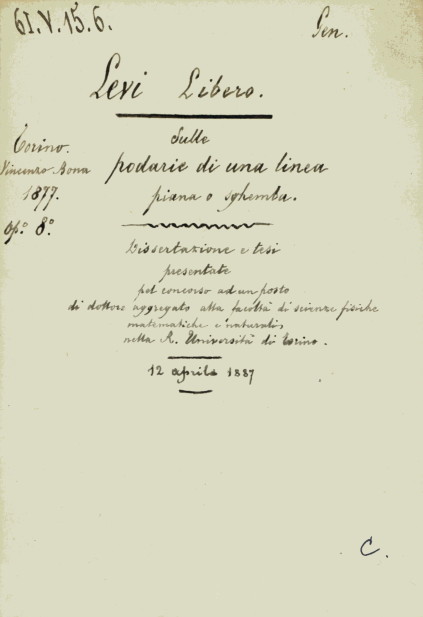 61.V.15.6.
Gen.
Levi Libero.
Sulle
podarie di una linea
piana o sghemba.
Torino.
Vincenzo Bona
1877.
op.° 8.°
Dissertazione e tesi
presentate
pel concorso ad un posto
di dottore aggregato alla facoltà di scienze fisiche
matematiche e naturali,
nella R. Università di Torino.
12 aprile 1887
C.